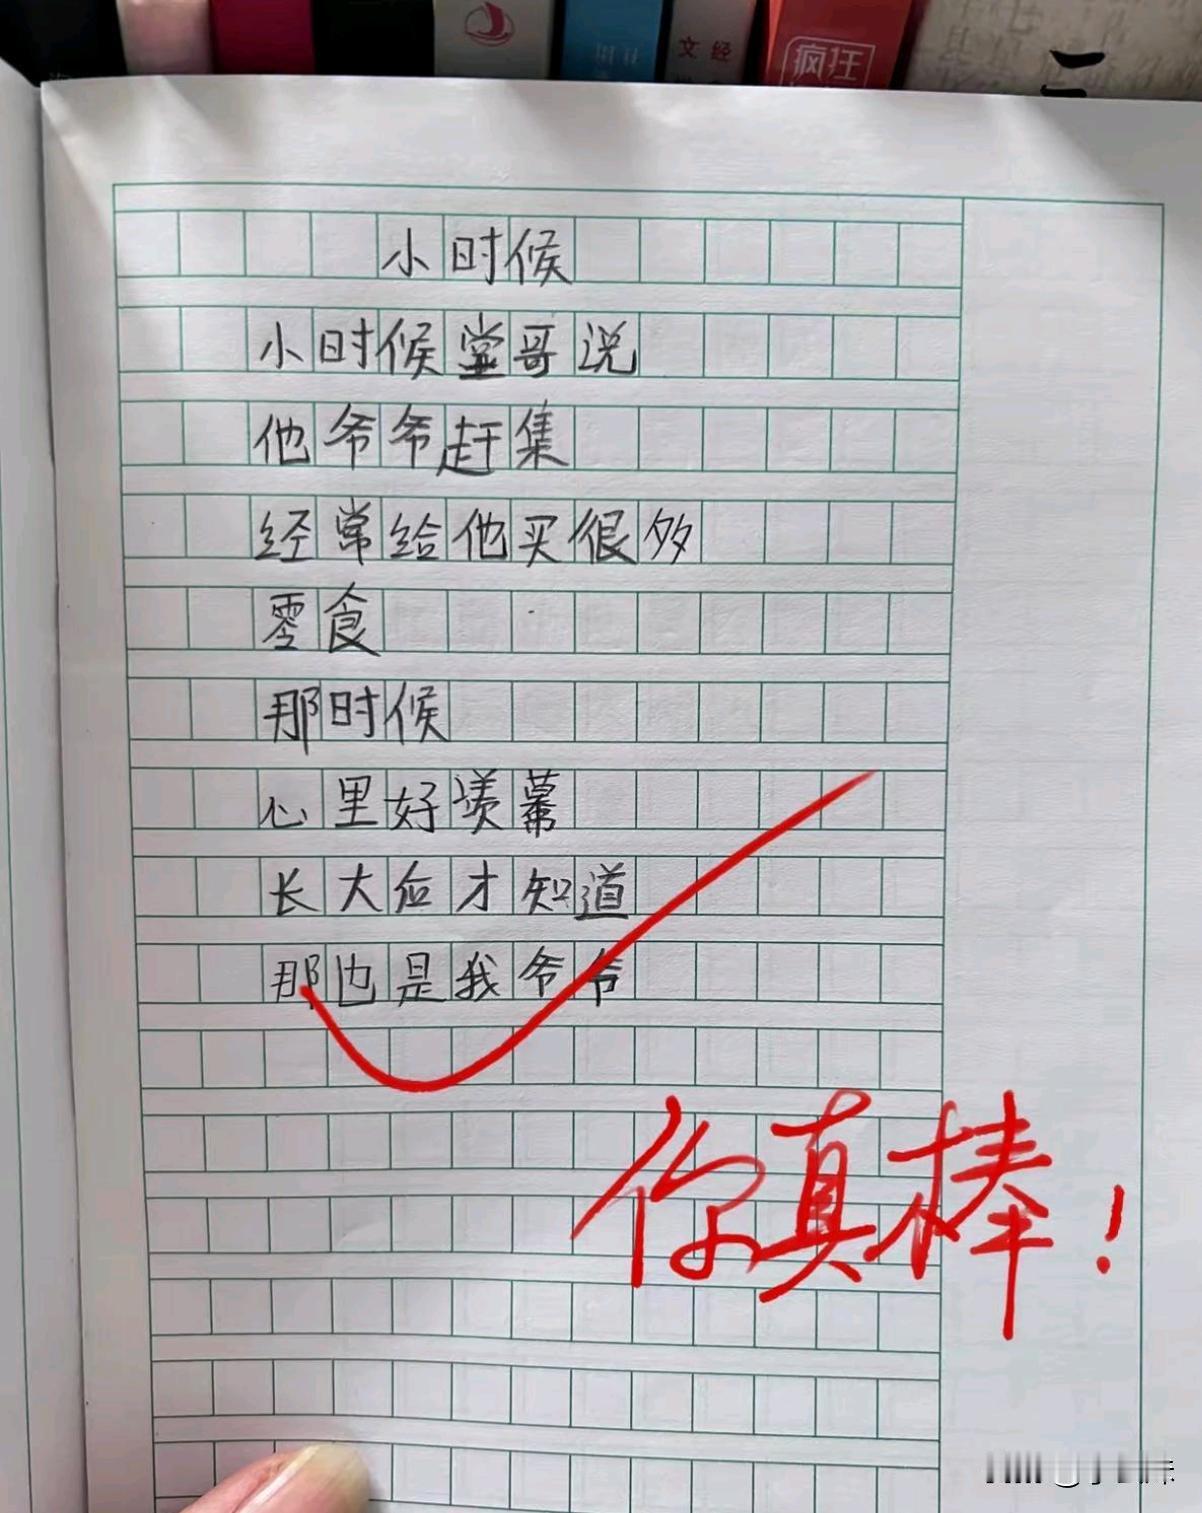 文 经
疯狂
小时候
小时候堂哥说
他爷爷赶集
经常给他买很多
零食
那时候
心里好羡幕
长大后才知道
那也是我爷爷
你真棒!